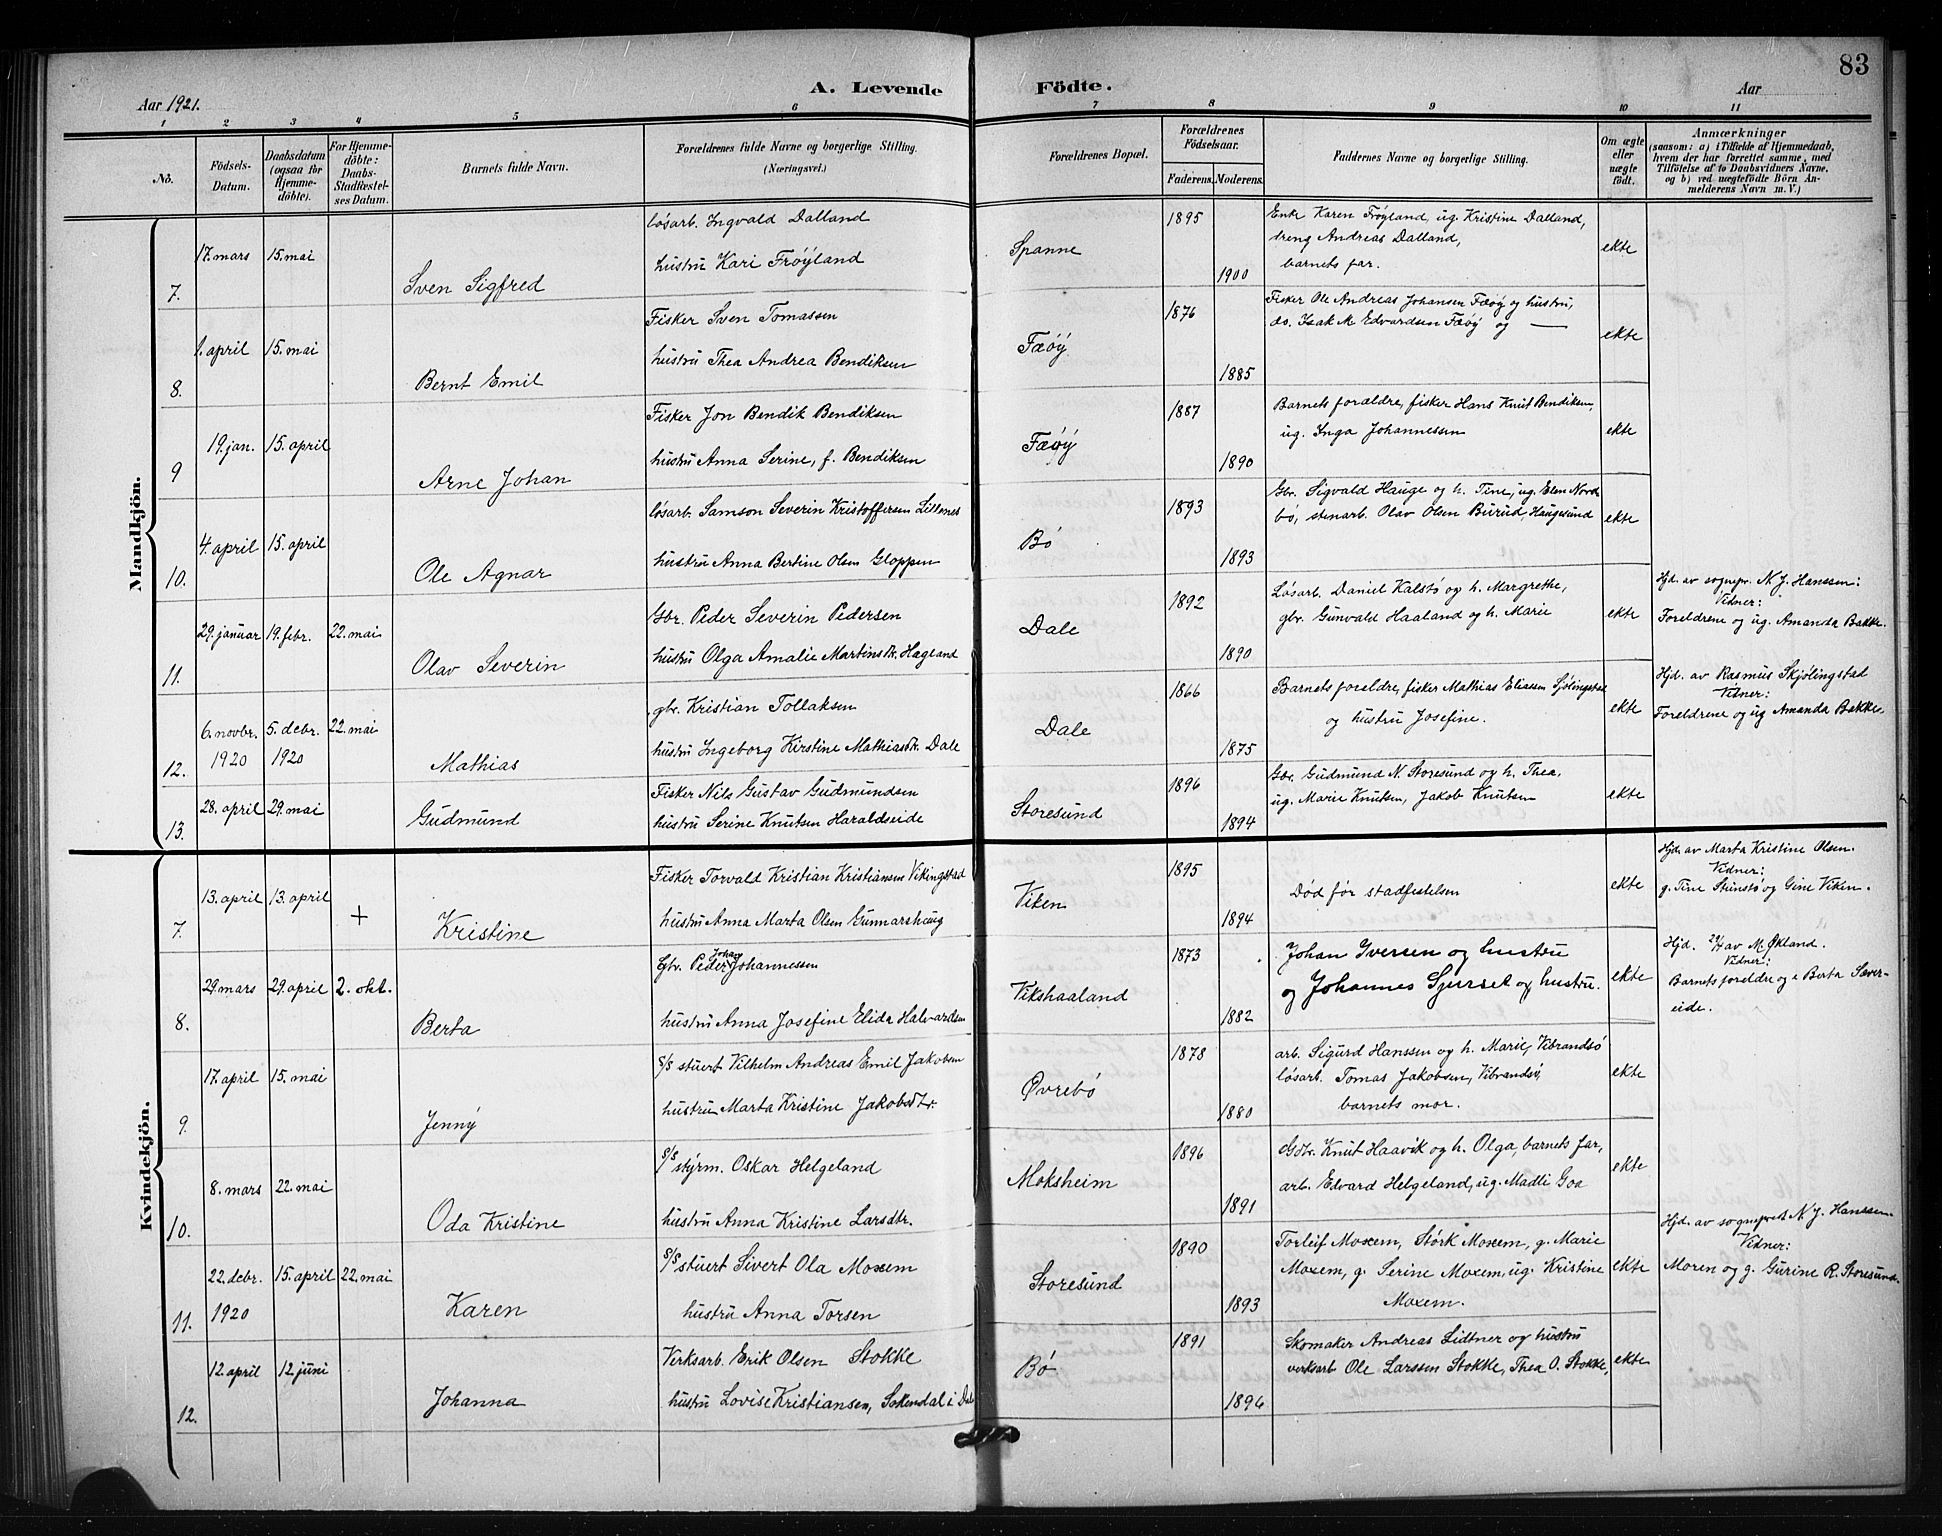 83
Aar 1921.
A. Levende Födte.
Aar
1 2 3 4 5 6 7 8 9 10 11
No.
Födsels-Datum.
Daabsdatum (ogsaa for Hjemme-döbte).
For Hjemme-döbte: Daabs-Stadfæstel-ses Datum.
Barnets fulde Navn.
Forældrenes fulde Navne og borgerlige Stilling. (Næringsvei.)
Forældrenes Bopæl.
Forældrenes Födselsaar.
Faderens. Moderens.
Faddernes Navne og borgerlige Stilling.
Om ægte eller uægte födt.
Anmærkninger
(saasom: a) i Tilfælde af Hjemmedaab,
hvem der har forrettet samme, med
Tilföielse af to Daabsvidners Navne,
og b) ved uægtefödte Börn An-
melderens Navn m. V.)
Mandkjön.
løsarb. Ingvald Dalland
17. mars 15. mai
hustru Kari Frøyland
7. Sven Sigfred
Spanne
1895
1900
Enke Karen Frøyland, ug. Kristine Dalland,
dreng Andreas Dalland,
barnets far.
ekte
Fisker Sven Tomassen
1. april 15. mai
hustru Thea Andrea Bendiksen
8. Bernt Emil
Fæøy
1876
1885
Fisker Ole Andreas Johansen Fæøy og hustru,
do. Isak M. Edvardsen Fæøy og —
ekte
Fisker Jon Bendik Bendiksen
19. jan. 15. april
hustru Anna Serine, f. Bendiksen
9 Arne Johan
Fæøy
1887
1890
Barnets forældre, fisker Hans Knut Bendiksen,
ug. Inga Johannessen
ekte
løsarb. Samson Severin Kristoffersen Lillenes
4. april 15. april
hustru Anna Bertine Olsen Gloppen
10. Ole Agnar
Bø
1893
1893
Gbr. Sigvald Hauge og h. Tine, ug. Elen Nord
bø, stenarb. Olav Olsen Burud, Haugesund
ekte
Gbr. Peder Severin Pedersen
29. januar 19. febr. 22. mai
hustru Olga Amalie Martinsdtr. Hagland
11. Olav Severin
Dale
1892
1890
Løsarb. Daniel Kalstø og h. Margrethe,
gbr. Gunvald Haaland og h. Marie
ekte
Hjd. av sognepr. N. J. Hanssen:
Vidner:
Foreldrene og ug. Amanda Bakke.
gbr. Kristian Tollaksen
6. novbr. 1920 5. debr. 1920 22. mai
hustru Ingeborg Kirstine Mathiasdtr. Dale
12. Mathias
Dale
1866
1875
Barnets foreldre, fisker Mathias Eliasen Sjølingstad
og hustru Josefine.
ekte
Hjd. av Rasmus Skjølingstad
Vidner:
Foreldrene og ug Amanda Bakke.
Fisker Nils Gustav Gudmundsen
28. april 29. mai
13. Gudmund
hustru Serine Knutsen Haraldseide
Storesund
1896
1894
Gbr. Gudmund N. Storesund og h. Thea,
ug. Marie Knutsen, Jakob Knutsen
ekte
Kvindekjön.
Fisker Torvald Kristian Kristiansen Vikingstad
13. april 13. april +
hustru Anna Marta Olsen Gunnarshaug
7. Kristine
Viken
1895
1894
Død før stadfestelsen
ekte
Hjd. av Marta Kristine Olsen.
Vidner:
g. Tine Stensø og Gine Viken.
Gbr. Peder Johan Johannessen
29. mars 29. april 2. okt.
hustru Anna Josefine Elida Halvardsen
8. Berta
Vikshaaland
1873
1882
Johan Iversen og hustru
og Johannes Sjurset og hustru.
ekte
Hjd. av M. Økland.
Vidner:
Barnets foreldre og Berta Sæver-
eide.
s/s stuert Vilhelm Andreas Emil Jakobsen
17. april 15. mai
hustru Marta Kristine Jakobsdtr.
9. Jenny
Øvrebø
1878
1880
arb. Sigurd Hanssen og h. Marie, Vibrandsø
løsarb. Tomas Jakobsen, Vibrandsø,
barnets mor.
ekte
s/s styrm. Oskar Helgeland
8. mars 22. mai
hustru Anna Kristine Larsdtr.
10. Oda Kristine
Moksheim
1896
1891
Gdbr. Knut Haavik og h. Olga, barnets far,
arb. Edvard Helgeland, ug. Madli Goa
ekte
s/s stuert Sivert Ola Moxem
22. debr. 1920 15. april 22. mai
hustru Anna Torsen
11. Karen
Storesund
1890
1893
Torleif Moxem, Størk Moxem, g. Marie
Moxem, g. Serine Moxem, ug. Kristine
Moxem.
ekte
Hjd. av sogneprest N. J. Hanssen.
Vidner:
Moren og g. Gurine R. Storesund.
Verksarb. Erik Olsen Stokke
12. april 12. juni
hustru Lovise Kristiansen, Sokendal i Dale
12. Johanna
Bø
1891
1896
Skomaker Andreas Lidtner og hustru
verksarb. Ole Larssen Stokke, Thea O. Stokke,
ekte